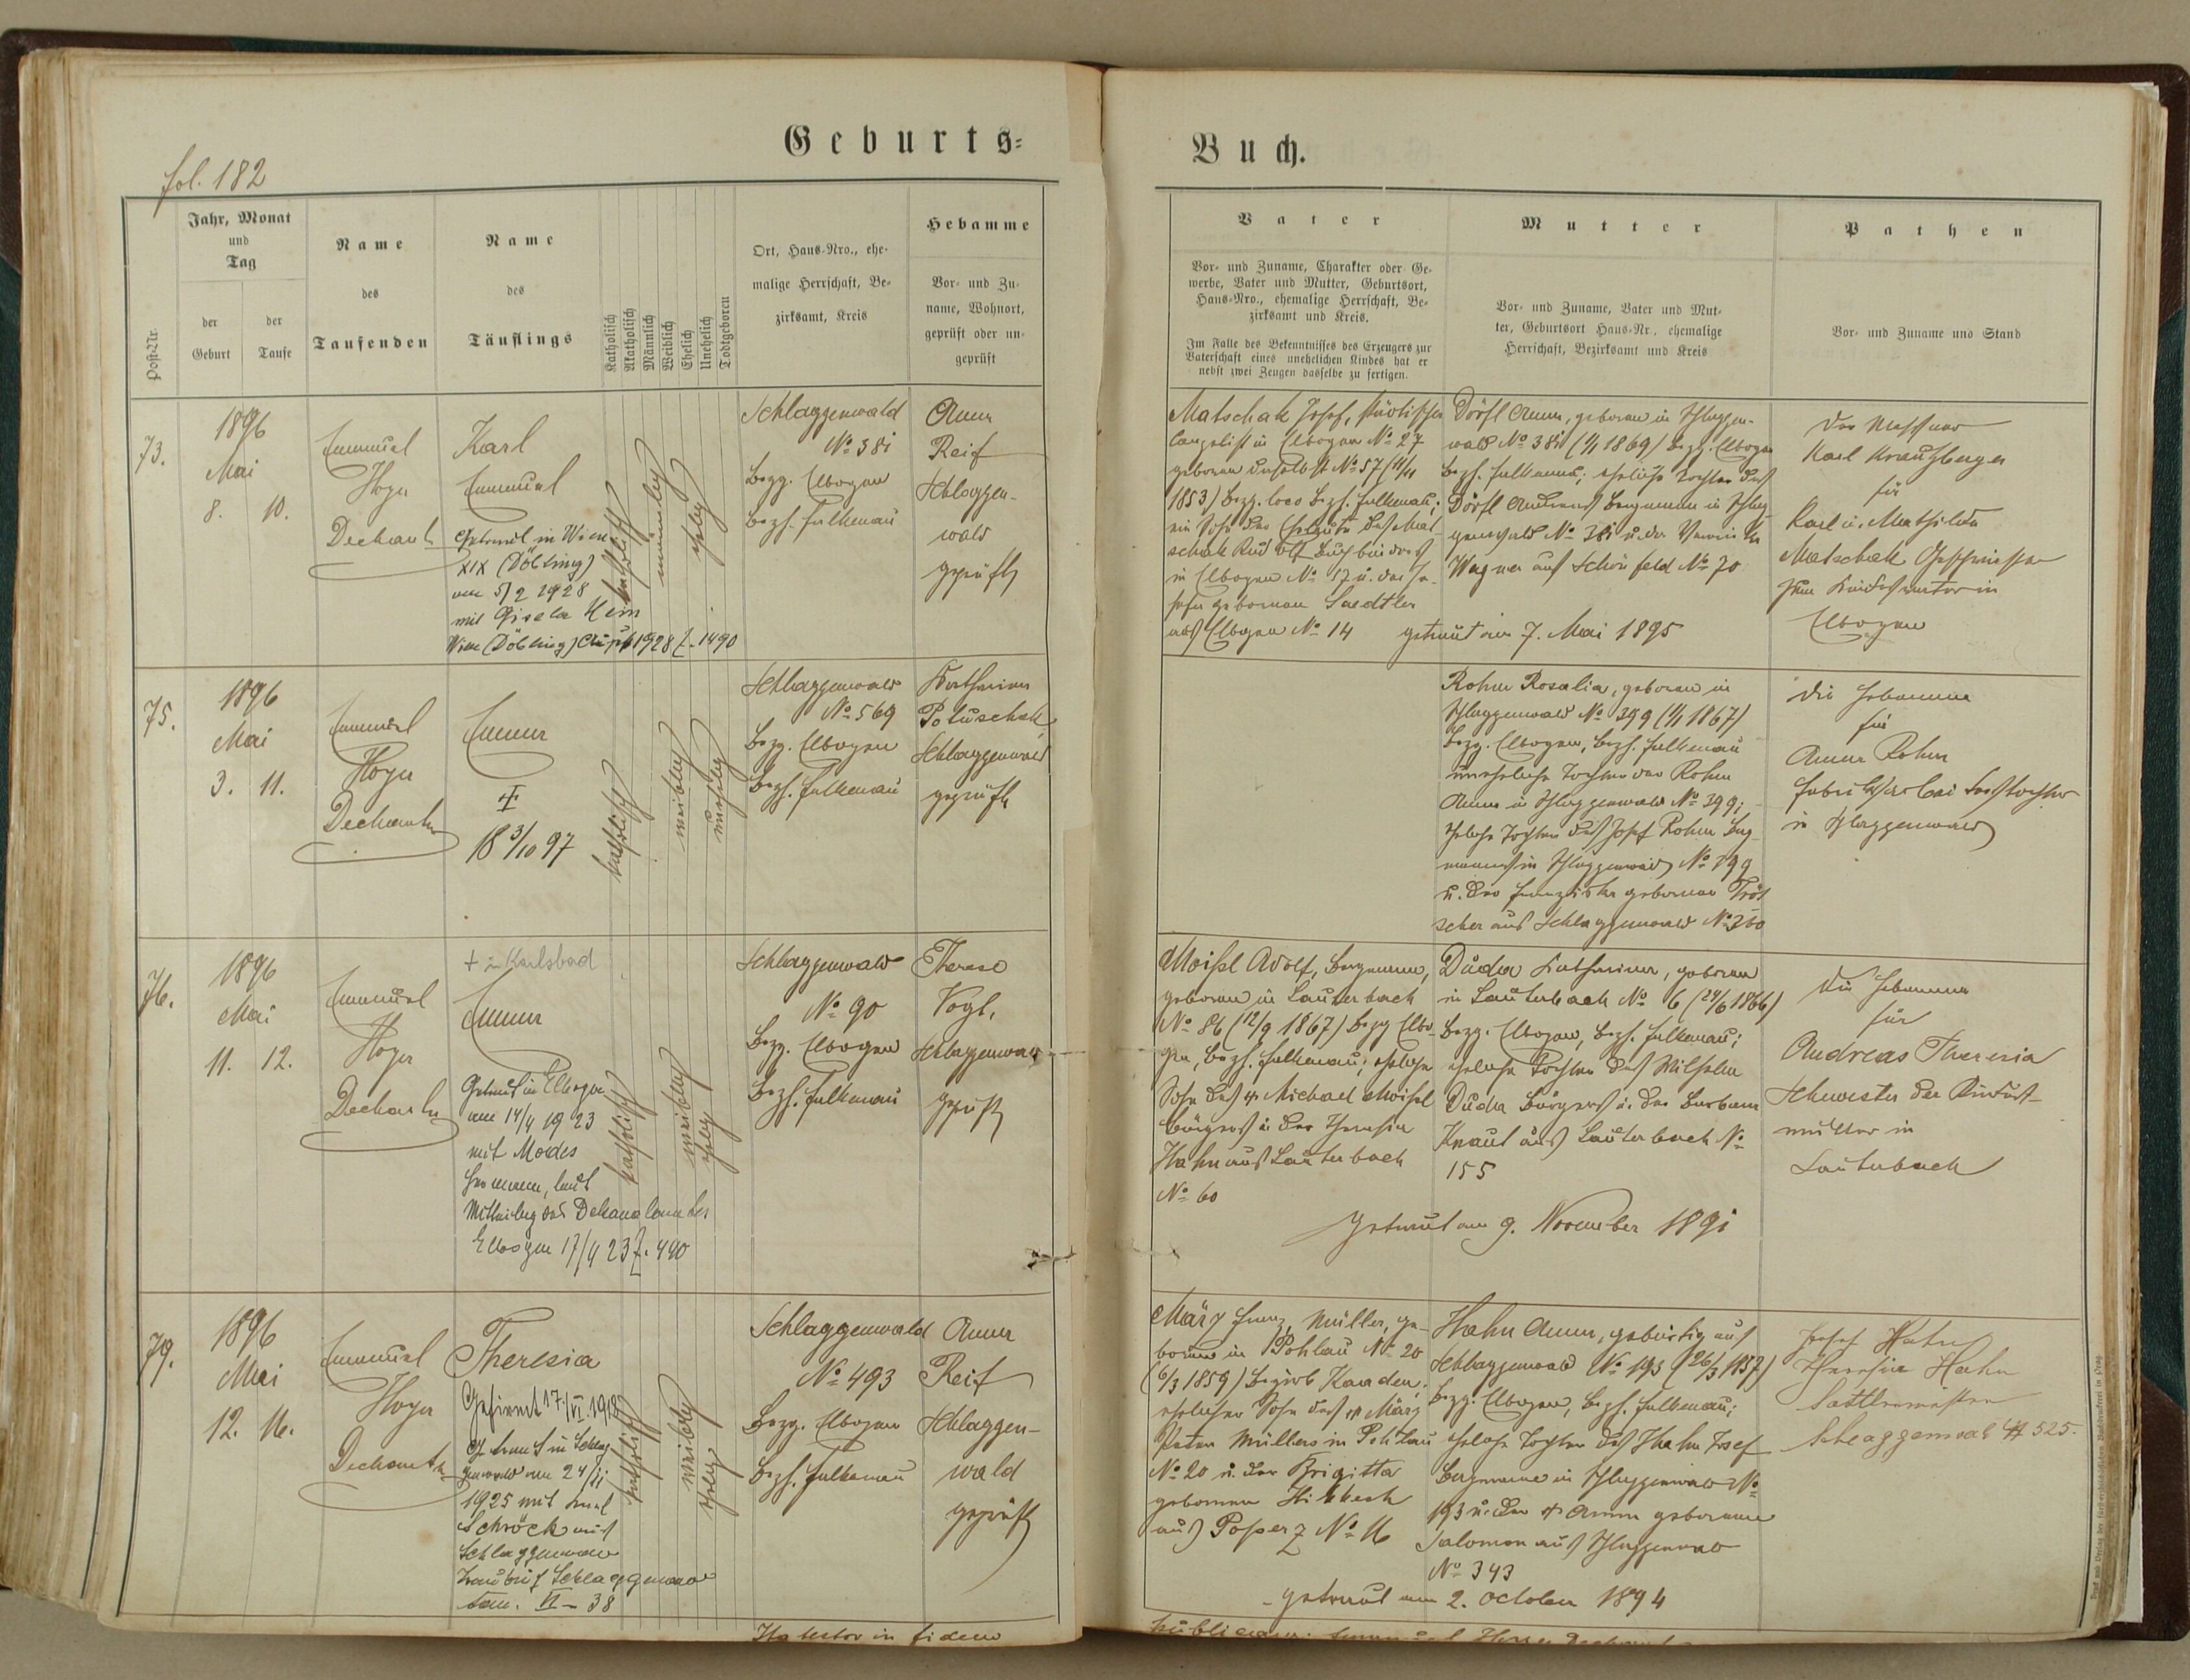 fol. 182
Geburts-
Buch.
Post-Nr.
Jahr, Monat
und
Tag
der
Geburt
der
Taufe
Name
des
Taufenden
Name
des
Täuflings
Katholisch
Akatholisch
Männlich
Weiblich
Ehelich
Unehelich
Todtgeboren
Ort, Haus-Nro., ehe-
malige Herrschaft, Be-
zirksamt, Kreis
Hebamme
Vor- und Zu-
name, Wohnort,
geprüft oder un-
geprüft
Vater
Vor- und Zuname, Charakter oder Ge-
werbe, Vater und Mutter, Geburtsort,
Haus-Nro., ehemalige Herrschaft, Be-
zirksamt und Kreis.
Im Falle des Bekenntnisses des Erzeugers zur
Vaterschaft eines unehelichen Kindes hat er
nebst zwei Zeugen dasselbe zu fertigen.
Mutter
Vor- und Zuname, Vater und Mut-
ter, Geburtsort Haus-Nr. ehemalige
Herrschaft, Bezirksamt und Kreis
Pathen
Vor- und Zuname und Stand
73.
1896
Mai
8. 10.
Emanuel
Hoyer
Dechant
Karl
Emanuel
Getraut in Wien
XIX (Döbling)
am 5/2 1928
mit Gisela
Wien (Döbling) 1928 Z. 1490
katholisch
männlich
ehelich
Schlaggenwald
No 381
Bezg. Elbogen
Bezh. Falkenau
Anna
Reif
Schlaggen-
wald
geprüft
Matschak Josef, städtischer
Canzelist in Elbogen No 27
geboren daselbst No 57 (11/11
1853) Bezg. loco Bezh. Falkenau;
ein Sohn des Mat-
schak Rudolf Buchbinders
in Elbogen No 17 u. der
geborenen Saedtler
aus Elbogen No 14
getraut am 7. Mai 1895
Dörfl Anna, geboren in Schlaggen-
wald No 381 (1869) Bezg. Elbogen
Bezh. Falkenau; eheliche Tochter des
Dörfl Bergmann in Schlag-
genwald No 381 u. der
Wagner aus Schönfeld No 70
Der Messner
Karl Kreuzberger
für
Karl u. Mathilda
Matschak Geschwister
in
Elbogen
75.
1896
Mai
3. 11.
Emanuel
Hoyer
Dechant
Anna
†
18 3/10 97
katholisch
weiblich
unehelich
Schlaggenwald
No 569
Bezg. Elbogen
Bezh. Falkenau
Katharina
Potuschak
Schlaggenwald
geprüft
Rohm Rosalia, geboren in
Schlaggenwald No 399 (1867)
Bezg. Elbogen, Bezh. Falkenau
uneheliche Tochter der Rohm
Anna in Schlaggenwald No 399;
eheliche Tochter des Josef Rohm Berg-
manns in Schlaggenwald No 199
u. der Franziska geborenen Tröt-
scher aus Schlaggenwald No 260
Die Hebamme
für
Anna Rohm
Fabriksarbeiterstochter
in Schlaggenwald
76.
1896
Mai
11. 12.
Emanuel
Hoyer
Dechant
† in Karlsbad
Anna
Getraut in Elbogen
am 14/4 1923
mit Moder
Hermann, laut
Mitteilung des Dekanalamtes
Elbogen 17/4 23 Z. 490
katholisch
weiblich
ehelich
Schlaggenwald
No 90
Bezg. Elbogen
Bezh. Falkenau
Therese
Vogl,
Schlaggenwald
geprüft
Moißl Adolf, Bergmann,
geboren in Lauterbach
No 86 (12/9 1867) Bezg Elbo-
gen, Bezh. Falkenau; ehelicher
Sohn des † Michael Moißl
Bürgers u. der Theresia
Hahn aus Lauterbach
No 60
Duda Katharina, geboren
in Lauterbach No 6 (24/6 1866)
Bezg. Elbogen, Bezh. Falkenau;
eheliche Tochter des Wilhelm
Duda Bürgers u. der Barbara
Knaut aus Lauterbach No
155
Getraut am 9. November 1891
Die Hebamme
für
Andreas Theresia
Schwester der Kindes-
mutter in
Lauterbach
79.
1896
Mai
12. 16.
Emanuel
Hoyer
Dechant
Theresia
Gefirmt 17./VI. 1918
Getraut in Schlag-
genwald am 24/11
1925 mit Karl
Schröck aus
Schlaggenwald
Schlaggenwald
tom. VI - 38
katholisch
weiblich
ehelich
Schlaggenwald
No 493
Bezg. Elbogen
Bezh. Falkenau
Anna
Reif
Schlaggen-
wald
geprüft
März Franz, Müller, ge-
boren in Pohlau No 20
(6/3 1859) Bezirk Kaaden;
ehelicher Sohn des † März
Peter Müllers in Pohlau
No 20 u. der Brigitta
geborenen
aus No 16
Hahn Anna, gebürtig aus
Schlaggenwald No 193 (26/3 1857)
Bezg. Elbogen, Bezh. Falkenau;
eheliche Tochter des Hahn Josef
Bergmann in Schlaggenwald No
193 u. der † Anna geborenen
Salomon aus Schlaggenwald
No 343
getraut am 2. October 1894
Josef Hahn
Theresia Hahn
Sattlermeister
Schlaggenwald # 525.
Ita testor in fidem
publicam: Emanuel Hoyer Dechant